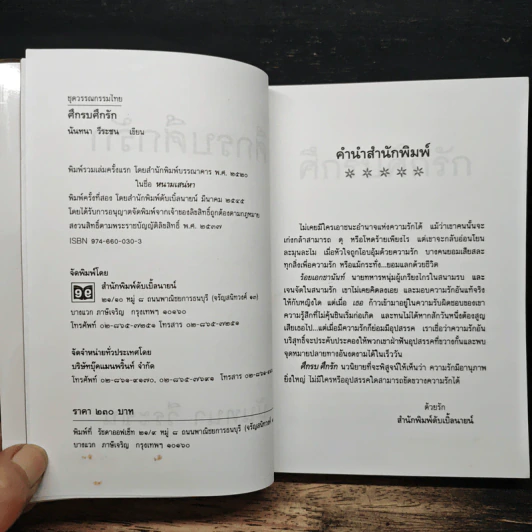 ชุดวรรณกรรมไทย
ศึกรบศึกรัก
นันทนา วีระชน เขียน
พิมพ์รวมเล่มครั้งแรก โดยสำนักพิมพ์บรรณาคาร พ.ศ. ๒๕๒๐
ในชื่อ หนามเสน่หา
พิมพ์ครั้งที่สอง โดยสำนักพิมพ์ดับเบิ้ลนายน์ มีนาคม ๒๕๔๕
โดยได้รับการอนุญาตจัดพิมพ์จากเจ้าของลิขสิทธิ์ถูกต้องตามกฎหมาย
สงวนลิขสิทธิ์ตามพระราชบัญญัติลิขสิทธิ์ พ.ศ. ๒๕๓๗
ISBN 974-660-030-3
จัดพิมพ์โดย
สำนักพิมพ์ดับเบิ้ลนายน์
๒๑/๑๐ หมู่ ๘ ถนนพาณิชยการธนบุรี (จรัญสนิทวงศ์ ๑๓)
บางแวก ภาษีเจริญ กรุงเทพฯ ๑๐๑๖๐
โทรศัพท์ ๐๒-๘๖๕-๓๒๕๑ โทรสาร ๐๒-๘๖๕-๓๒๕๑
จัดจำหน่ายทั่วประเทศโดย
บริษัทบุ๊คแมนพริ้นท์ จำกัด
โทรศัพท์ ๐๒-๘๖๑-๔๑๗๐, ๐๒-๘๖๕-๓๖๙๑ โทรสาร
ราคา ๒๓๐ บาท
พิมพ์ที่ รัชดาออฟเซ็ท ๒๑/๙ หมู่ ๘ ถนนพาณิชยการธนบุรี (จรัญสนิทวงศ์
บางแวก ภาษีเจริญ กรุงเทพฯ ๑๐๑๖๐
คำนำสำนักพิมพ์
ไม่เคยมีใครเอาชนะอำนาจแห่งความรักได้ แม้ว่าเขาคนนั้นจะ
เก่งกล้าสามารถ ดุ หรือโหดร้ายเพียงไร แต่เขาจะกลับอ่อนโยน
ละมุนละไม เมื่อหัวใจถูกโอบอุ้มด้วยความรัก บางคนยอมเสียสละ
ทุกสิ่งเพื่อความรัก หรือแม้กระทั่ง...ยอมแลกด้วยชีวิต
ร้อยเอกธานินท์ นายทหารหนุ่มผู้เกรียงไกรในสนามรบ และ
เจนจัดในสนามรัก เขาไม่เคยคิดลงเอย และมอบความรักอันแท้จริง
ให้กับหญิงใด แต่เมื่อ เธอ ก้าวเข้ามาอยู่ในความรับผิดชอบของเขา
ความรู้สึกที่ไม่คุ้นชินเริ่มก่อเกิด และทนไม่ได้หากสักวันหนึ่งต้องสูญ
เสียเธอไป...แต่เมื่อมีความรักก็ย่อมมีอุปสรรค เราเชื่อว่าความรักอัน
บริสุทธิ์จะประคับประคองให้พวกเขาฝ่าฟันอุปสรรคที่ขวางกั้นและพบ
จุดหมายปลายทางอันงดงามได้ในเร็ววัน
ศึกรบ ศึกรัก นวนิยายที่จะพิสูจน์ให้เห็นว่า ความรักมีอานุภาพ
ยิ่งใหญ่ ไม่มีใครหรืออุปสรรคใดสามารถขัดขวางความรักได้
ด้วยรัก
สำนักพิมพ์ดับเบิ้ลนายน์